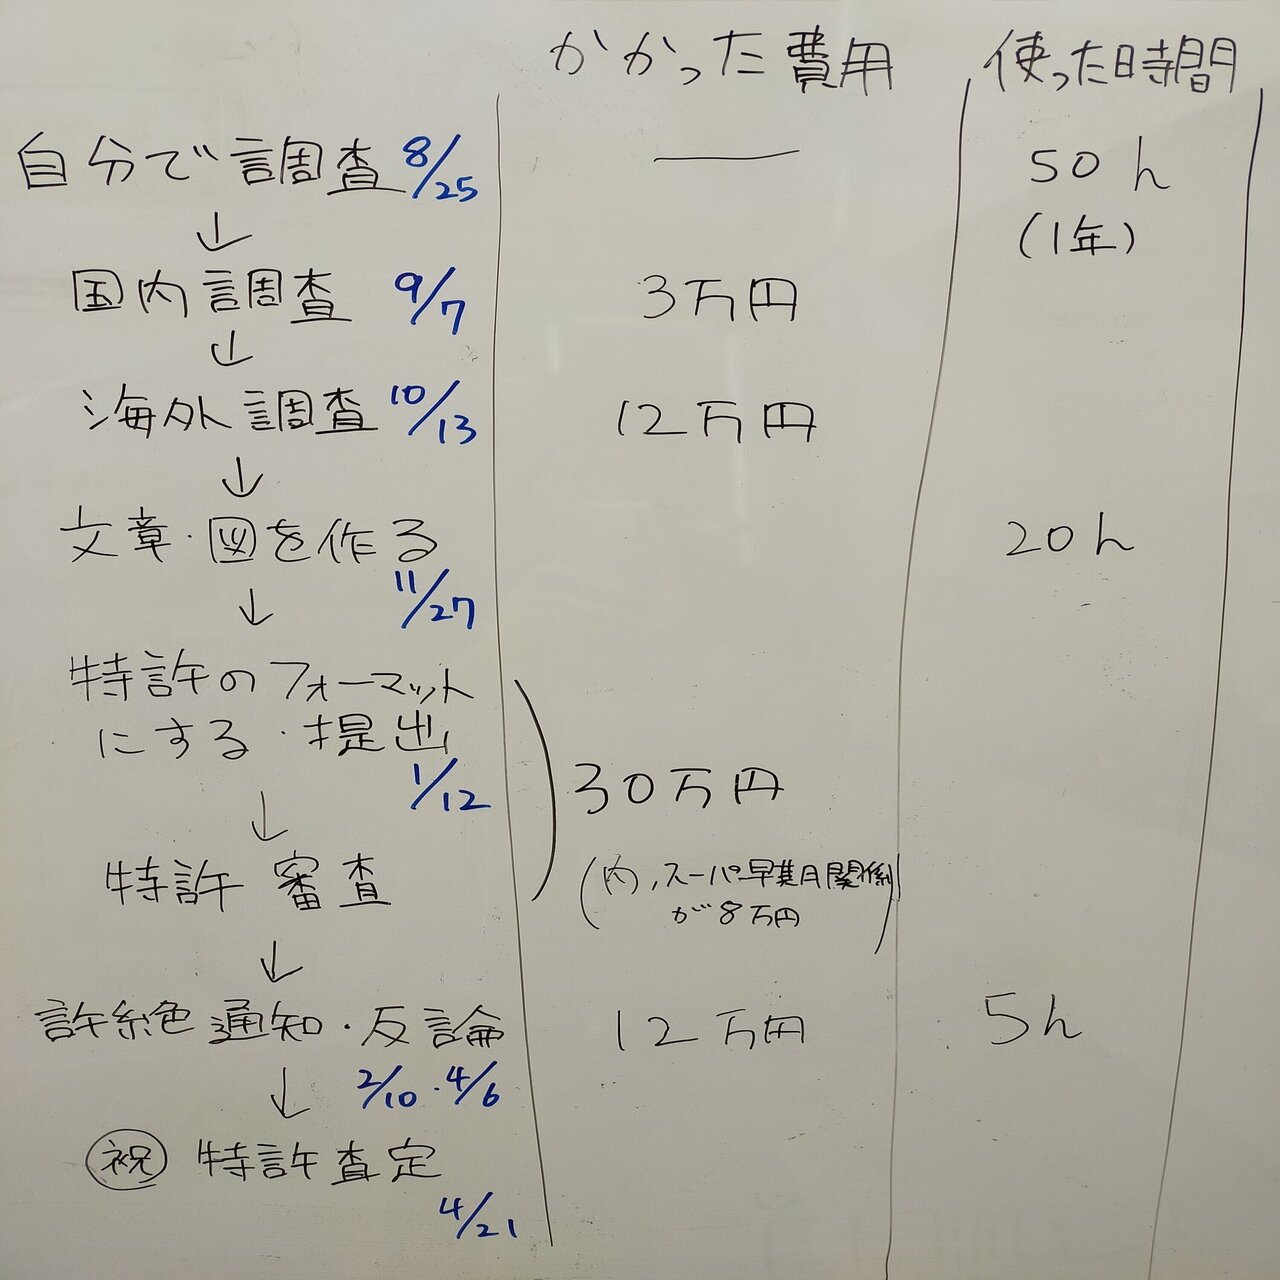 かかった費用 使った時間
自分で調査 8/25 ― 50h
(1年)
↓
国内調査 9/7 3万円
↓
海外調査 10/13 12万円
↓
文章・図を作る 20h
11/27
↓
特許のフォーマット
にする・提出
1/12
30万円
↓
特許審査
(内、スーパー早期関係
が8万円)
↓
拒絶通知・反論 12万円 5h
2/10・4/6
↓
㊗ 特許査定
4/21